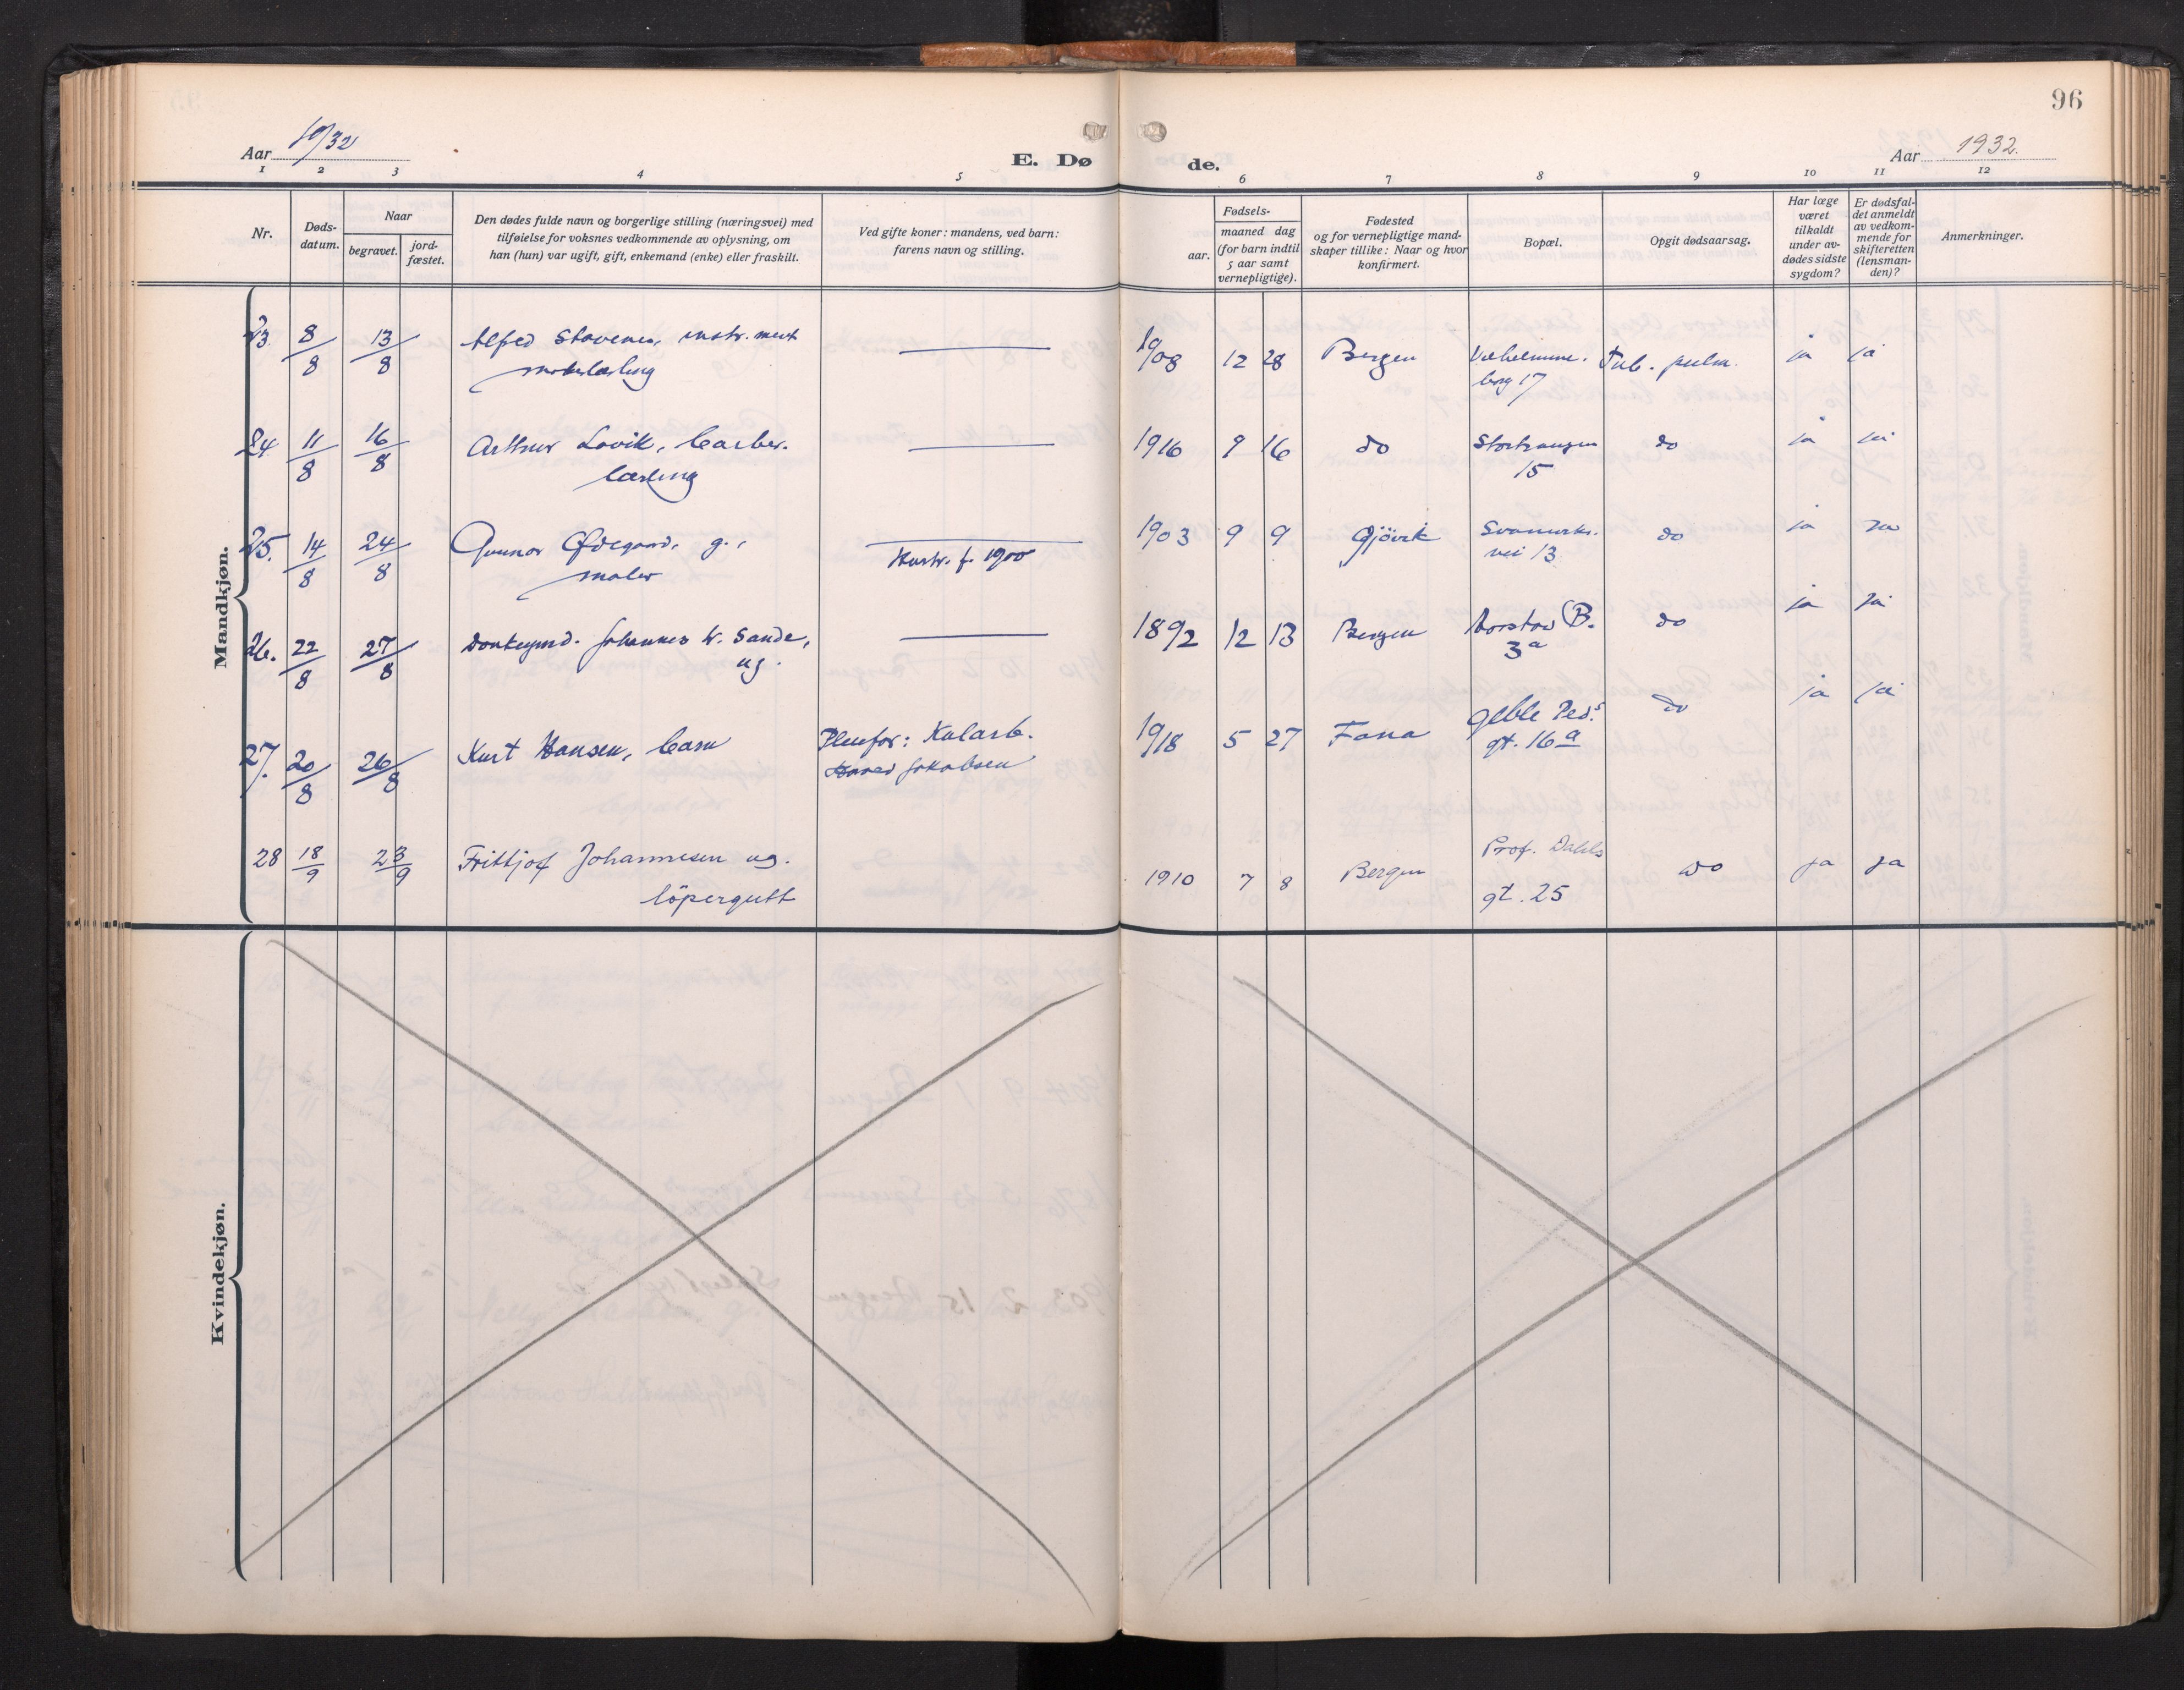 96
Aar 1932
E. Døde.
Aar 1932.
1 2 3 4 5 6 7 8 9 10 11 12
Nr.
Døds-
datum.
Naar
begravet.
jord-
fæstet.
Den dødes fulde navn og borgerlige stilling (næringsvei) med
tilføielse for voksnes vedkommende av oplysning, om
han (hun) var ugift, gift, enkemand (enke) eller fraskilt.
Ved gifte koner: mandens, ved barn:
farens navn og stilling.
Fødsels-
aar.
maaned dag
(for barn indtil
5 aar samt
vernepligtige).
Fødested
og for vernepligtige mand-
skaper tillike: Naar og hvor
konfirmert.
Bopæl.
Opgit dødsaarsag.
Har læge
været
tilkaldt
under av-
dødes sidste
sygdom?
Er dødsfal-
det anmeldt
av vedkom-
mende for
skifteretten
(lensman-
den)?
Anmerkninger.
Mandkjøn.
23. 8/8 13/8 Alfred 1908 12 28 Bergen Tub. pulm. ja ja
borg 17
24 11/8 16/8 Arthur Lovik, 1916 9 16 do 15 do ja ja
læsling
25. 14/8 24/8 Gunnar Ødegaard, g., Hustr. f. 1900 1903 9 9 Gjövik do ja ja
maler vei 13
26. 22/8 27/8 Johannes W. Sande, 1892 12 13 Bergen B. do ja ja
ug. 3a
27. 20/8 26/8 Kurt Hansen, barn Pleiefar: Kularb. 1918 5 27 Fana Geble Peds. do ja ja
Jakobsen gt. 16a
28 18/9 23/9 Frittjof Johannesen ug. 1910 7 8 Bergen Prof. Dahls do ja ja
löpergutt gt. 25
Kvindekjøn.